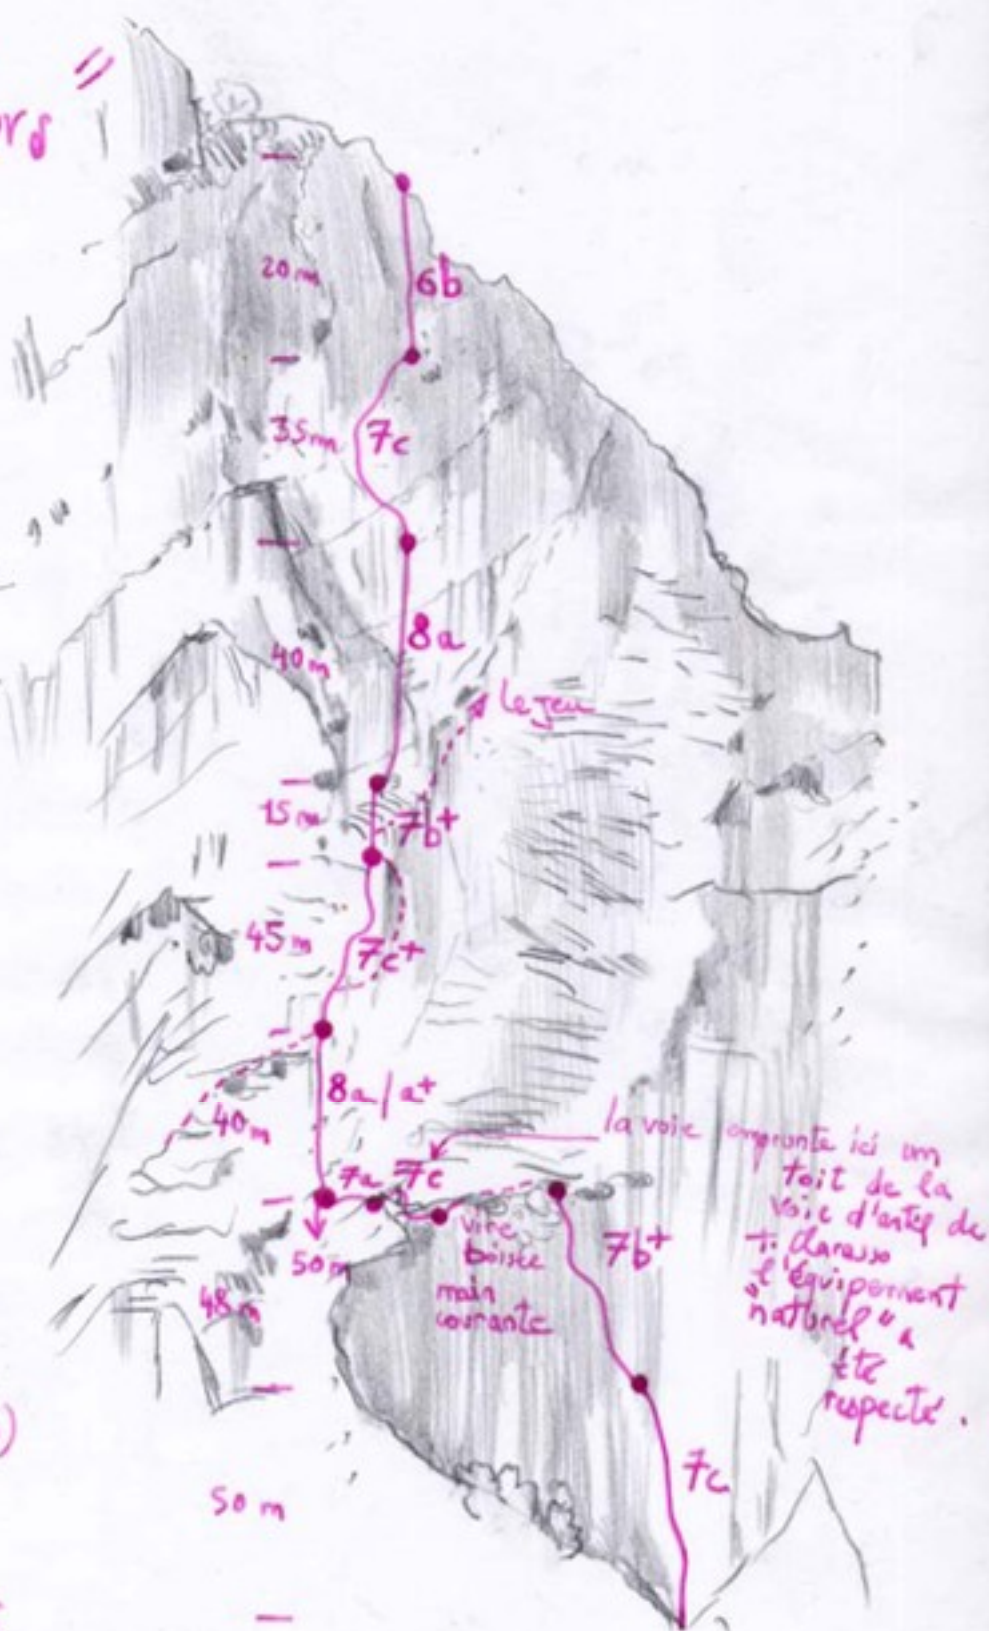 ors
20m
6b
35m
7c
40m
8a
le jeu
15m
7b+
45m
7c+
40m
8a/a+
la voie emprunte ici un
toit de la
voie d'artif de
l'équipement
"naturel" a
été
respecté.
7a
7c
vire
boisée
main
courante
7b+
50m
48m
7c
50 m